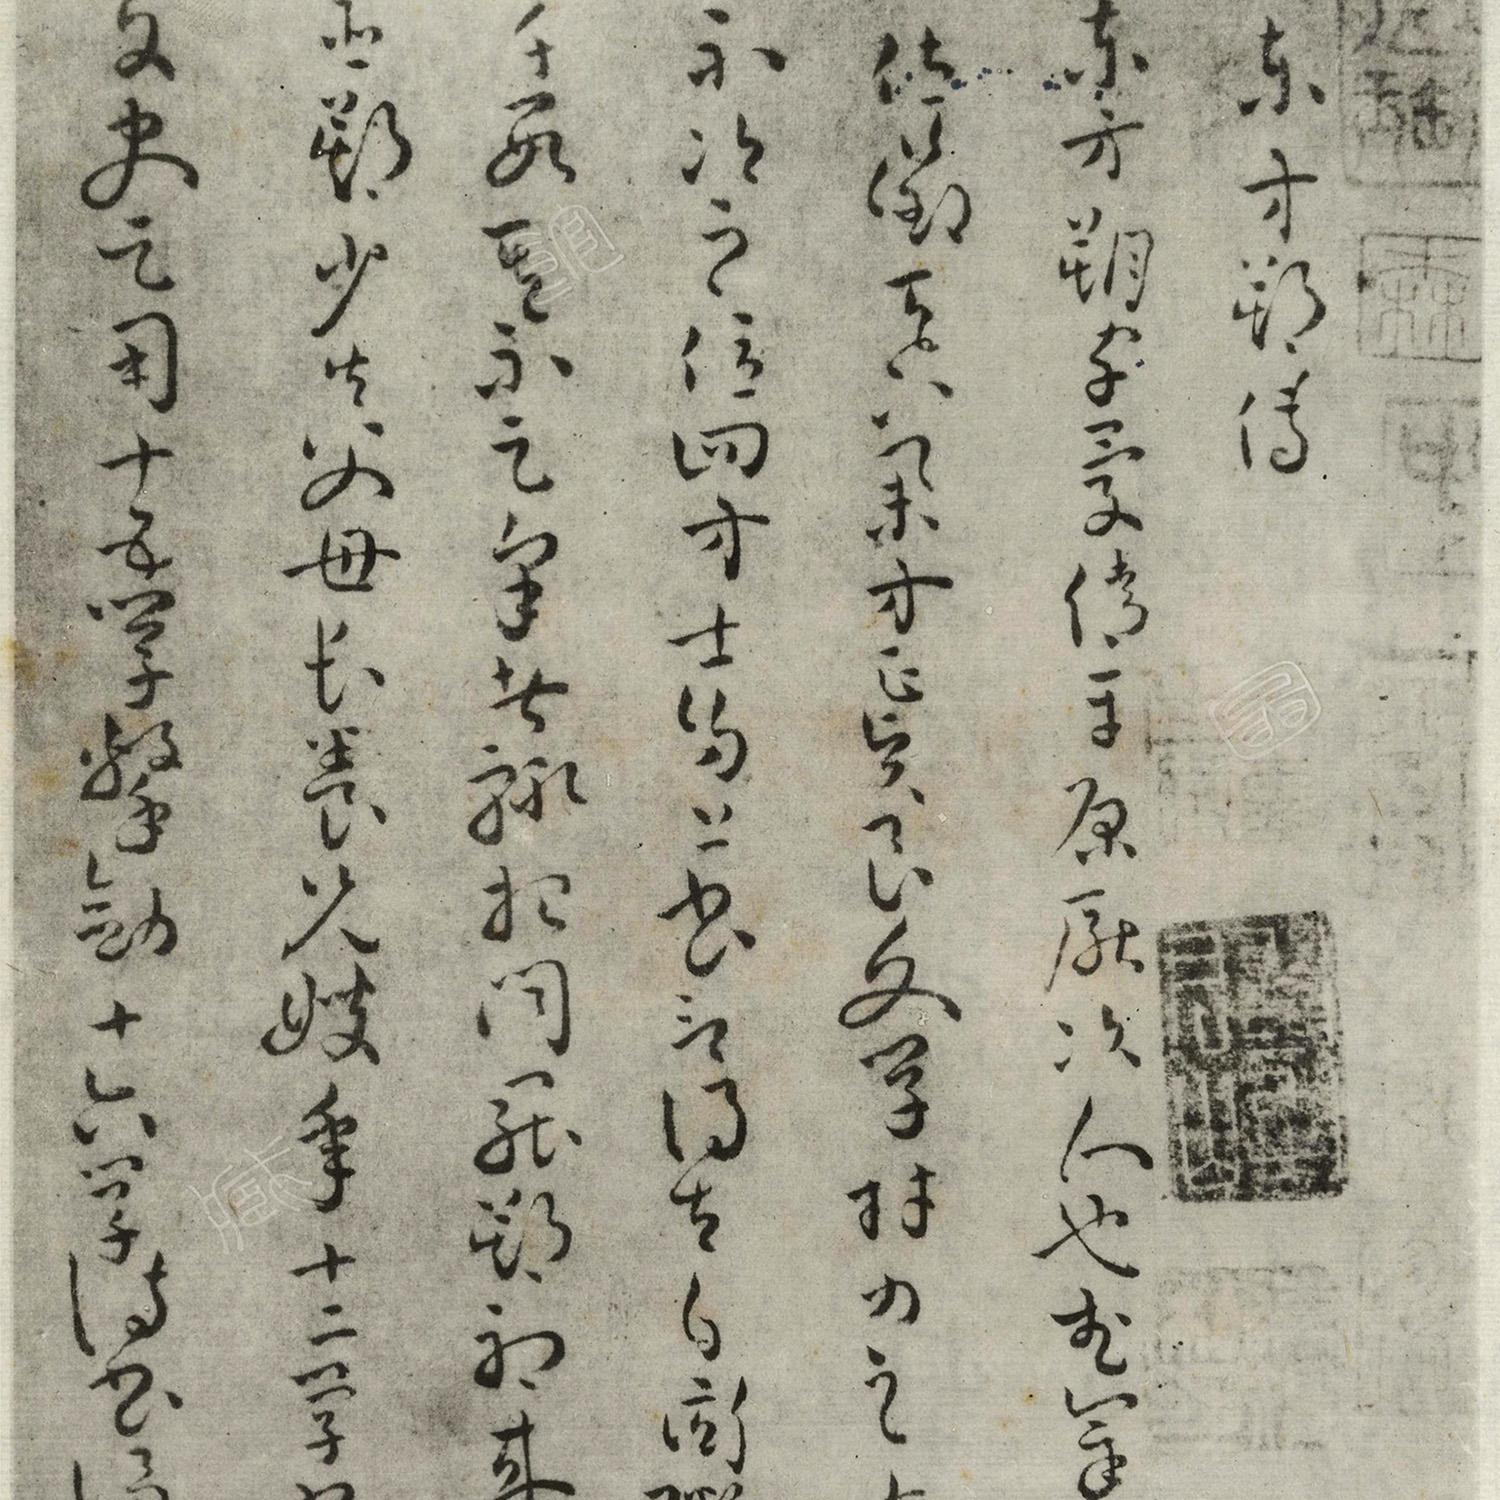 東方朔傳
東方朔字曼倩平原厭次人也武帝
位徵天下舉方正賢良文學材力之
不次之位四方士多上書言得失自衒鬻
千數其不足采者輒報聞罷朔初來
臣朔少失父母長養兄嫂年十二學書
文史足用十五學擊劍十六學詩書誦